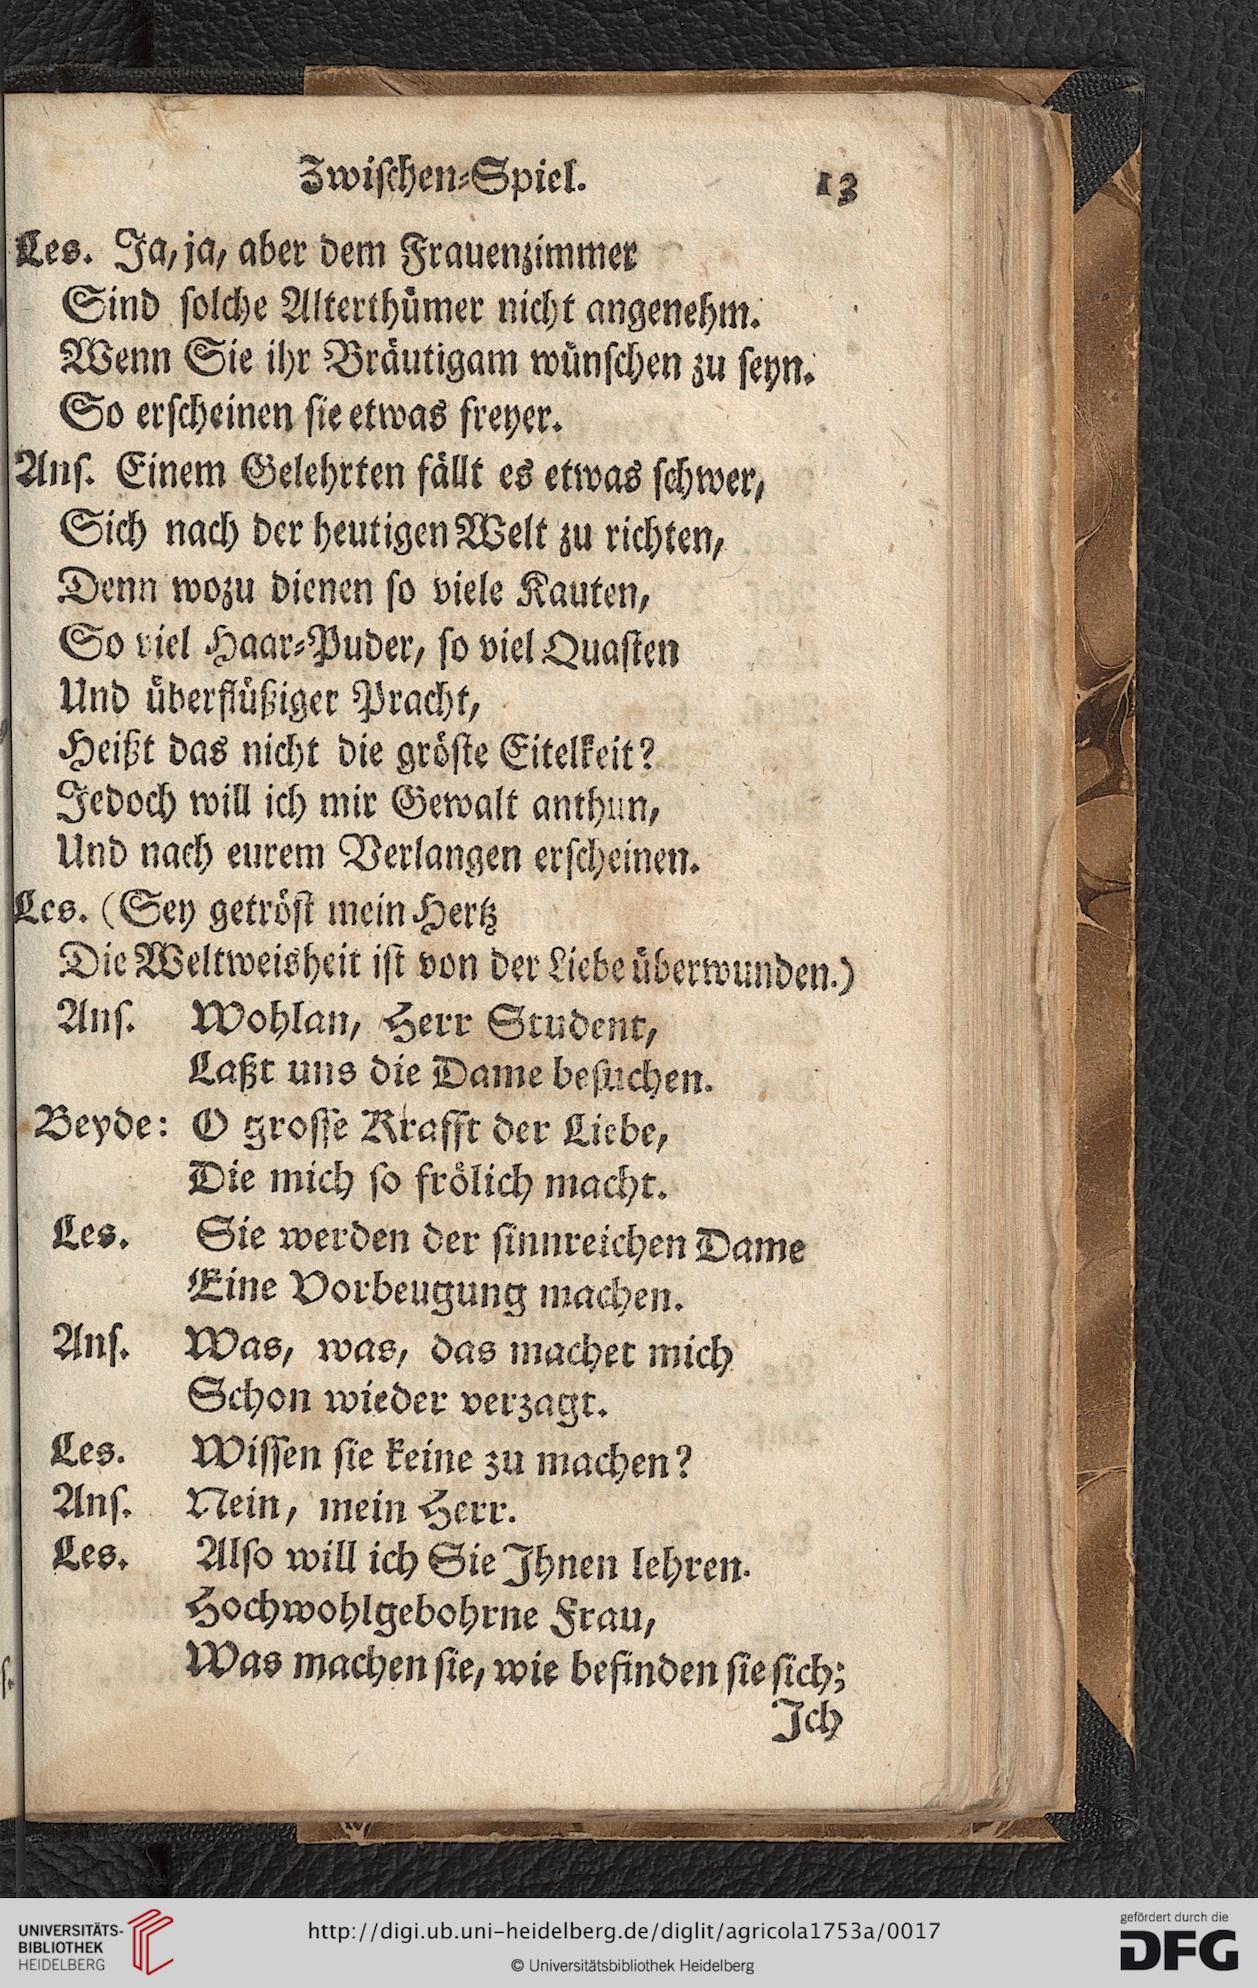 Zwischen-Spiel. 13
Les. Ja, ja, aber dem Frauenzimmer
Sind solche Alterthümer nicht angenehm.
Wenn Sie ihr Bräutigam wünschen zu seyn.
So erscheinen sie etwas freyer.
Ans. Einem Gelehrten fällt es etwas schwer,
Sich nach der heutigen Welt zu richten,
Denn wozu dienen so viele Kauten,
So viel Haar-Puder, so viel Quasten
Und überflüßiger Pracht,
Heißt das nicht die gröste Eitelkeit?
Jedoch will ich mir Gewalt anthun,
Und nach eurem Verlangen erscheinen.
Les. (Sey getröst mein Hertz
Die Weltweisheit ist von der Liebe überwunden.)
Ans. Wohlan, Herr Student,
Laßt uns die Dame besuchen.
Beyde: O grosse Krafft der Liebe,
Die mich so frölich macht.
Les. Sie werden der sinnreichen Dame
Eine Vorbeugung machen.
Ans. Was, was, das machet mich
Schon wieder verzagt.
Les. Wissen sie keine zu machen?
Ans. Nein, mein Herr.
Les. Also will ich Sie Ihnen lehren.
Hochwohlgebohrne Frau,
Was machen sie, wie befinden sie sich;
Ich
s.
UNIVERSITÄTS-
BIBLIOTHEK
HEIDELBERG
http://digi.ub.uni-heidelberg.de/diglit/agricola1753a/0017
© Universitätsbibliothek Heidelberg
gefördert durch die
DFG